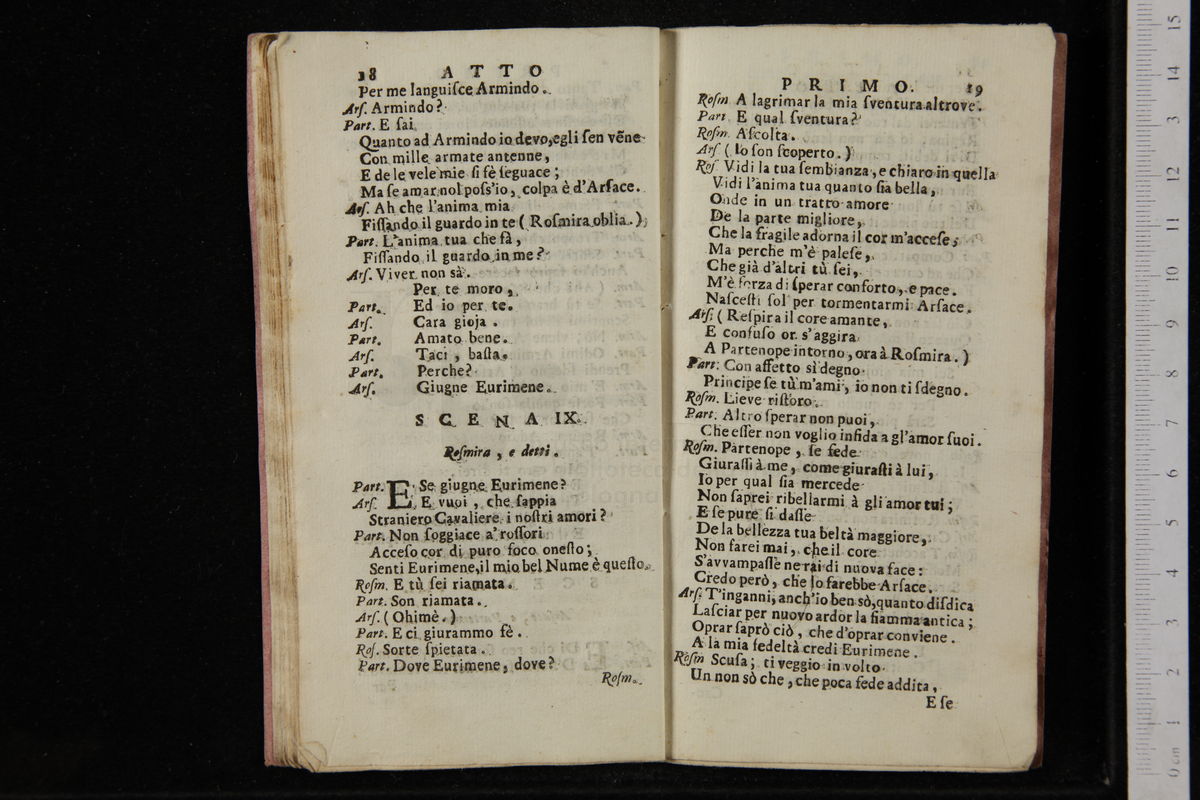 18 ATTO
Per me languiſce Armindo.
Arſ. Armindo?
Part. E ſai
Quanto ad Armindo io devo, egli ſen vẽne
Con mille armate antenne,
E de le vele mie ſi fè ſeguace;
Ma ſe amar nol poſs'io, colpa è d'Arſace.
Arſ. Ah che l'anima mia
Fiſſando il guardo in te (Roſmira oblia.)
Part. L'anima tua che fà,
Fiſſando il guardo in me?
Arſ. Viver non sà.
Per te moro,
Part. Ed io per te.
Arſ. Cara gioja.
Part. Amato bene.
Arſ. Taci, baſta.
Part. Perche?
Arſ. Giugne Eurimene.
SCENA IX.
Roſmira, e detti.
Part. E Se giugne Eurimene?
Arſ. E vuoi, che ſappia
Straniero Cavaliere i noſtri amori?
Part. Non ſoggiace a' roſſori
Acceſo cor di puro foco oneſto;
Senti Eurimene, il mio bel Nume è queſto.
Roſm. E tù ſei riamata.
Part. Son riamata.
Arſ. (Ohimè.)
Part. E ci giurammo fè.
Roſ. Sorte ſpietata.
Part. Dove Eurimene, dove?
Roſm.
PRIMO. 19
Roſm A lagrimar la mia ſventura altrove.
Part. E qual ſventura?
Roſm. Aſcolta.
Arſ (Io ſon ſcoperto.)
Roſ. Vidi la tua ſembianza, e chiaro in quella
Vidi l'anima tua quanto ſia bella,
Onde in un tratto amore
De la parte migliore,
Che la fragile adorna il cor m'acceſe;
Ma perche m'è paleſe,
Che già d'altri tù ſei,
M'è forza di ſperar conforto, e pace.
Naſceſti ſol per tormentarmi Arſace.
Arſ. (Reſpira il core amante,
E confuſo or s'aggira
A Partenope intorno, ora à Roſmira.)
Part. Con affetto sì degno
Principe ſe tù m'ami, io non ti ſdegno.
Roſm. Lieve riſtoro.
Part. Altro ſperar non puoi,
Che eſſer non voglio infida a gl'amor ſuoi.
Roſm. Partenope, ſe fede
Giuraſſi à me, come giuraſti à lui,
Io per qual ſia mercede
Non ſaprei ribellarmi à gli amor tui;
E ſe pure ſi daſſe
De la bellezza tua beltà maggiore,
Non farei mai, che il core
S'avvampaſſe ne rai di nuova face:
Credo però, che lo farebbe Arſace.
Arſ. T'inganni, anch'io ben sò, quanto diſdica
Laſciar per nuovo ardor la fiamma antica;
Oprar ſaprò ciò, che d'oprar conviene.
A la mia fedeltà credi Eurimene.
Roſm Scuſa; ti veggio in volto
Un non sò che, che poca fede addita,
E ſe